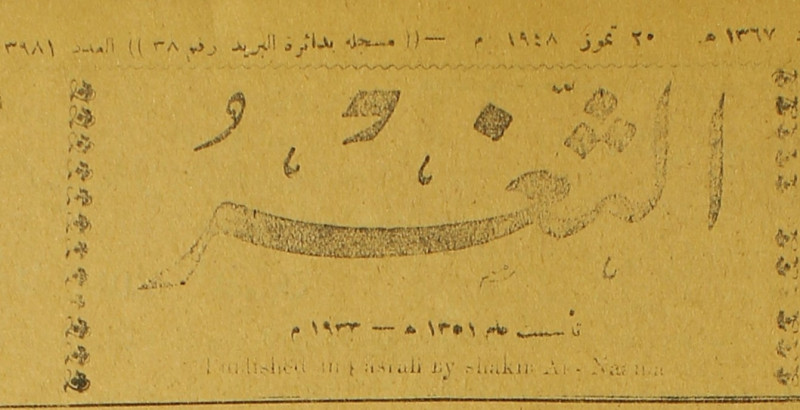 ١٣٦٧ هـ ٢٠ تموز ١٩٤٨ م —(( مسجله بدائرة البريد رقم ٣٨ )) العدد ٣٩٨١
الثغر
تأسست عام ١٣٥١ هـ — ١٩٣٣ م
Published in Basrah By Shakir An-Naama